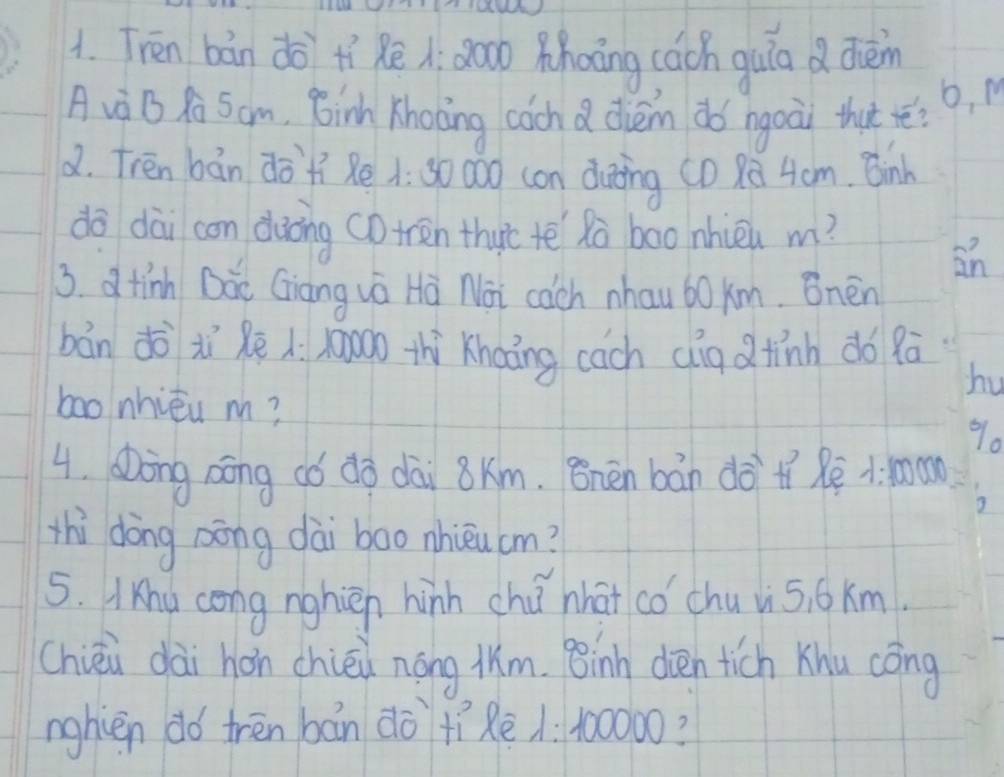 1. Trên bản đồ tỉ lệ 1: 2000 khoảng cách giữa 2 điểm
A và B là 5cm. Tính khoảng cách 2 điểm đó ngoài thực tế?
b, m
2. Trên bản đồ tỉ lệ 1: 30 000 con đường CD là 4cm. Tính
độ dài con đường CD trên thực tế là bao nhiêu m?
ản
3. 2 tỉnh Bắc Giang và Hà Nội cách nhau 60 km. Trên
bản đồ tỉ lệ 1: 10000 thì khoảng cách của 2 tỉnh đó là
hu
bao nhiêu m?
%
4. Dòng sông có độ dài 8km. Trên bản đồ tỉ lệ 1: 100 000
thì dòng sông dài bao nhiêu cm?
5. 1 khu công nghiệp hình chữ nhật có chu vi 5,6 km.
Chiều dài hơn chiều rộng 1km. Tính diện tích khu công
nghiệp đó trên bản đồ tỉ lệ 1: 100000?